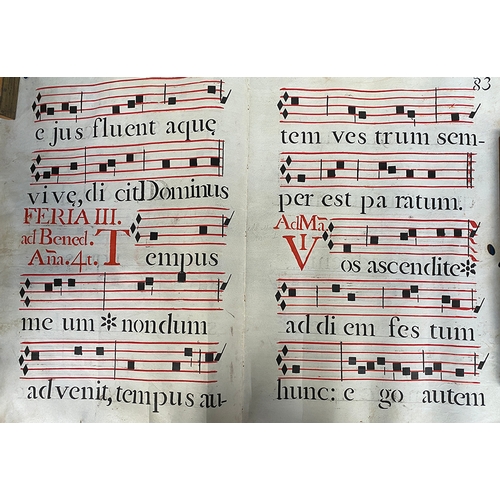 ejus fluent aquę
vivę, dicit Dominus
FERIA III.
ad Bened.
Aña. 4. t. Tempus
meum * nondum
advenit, tempus au-
83
tem vestrum sem-
per est paratum.
Ad Mã
Vos ascendite *
ad diem festum
hunc: ego autem